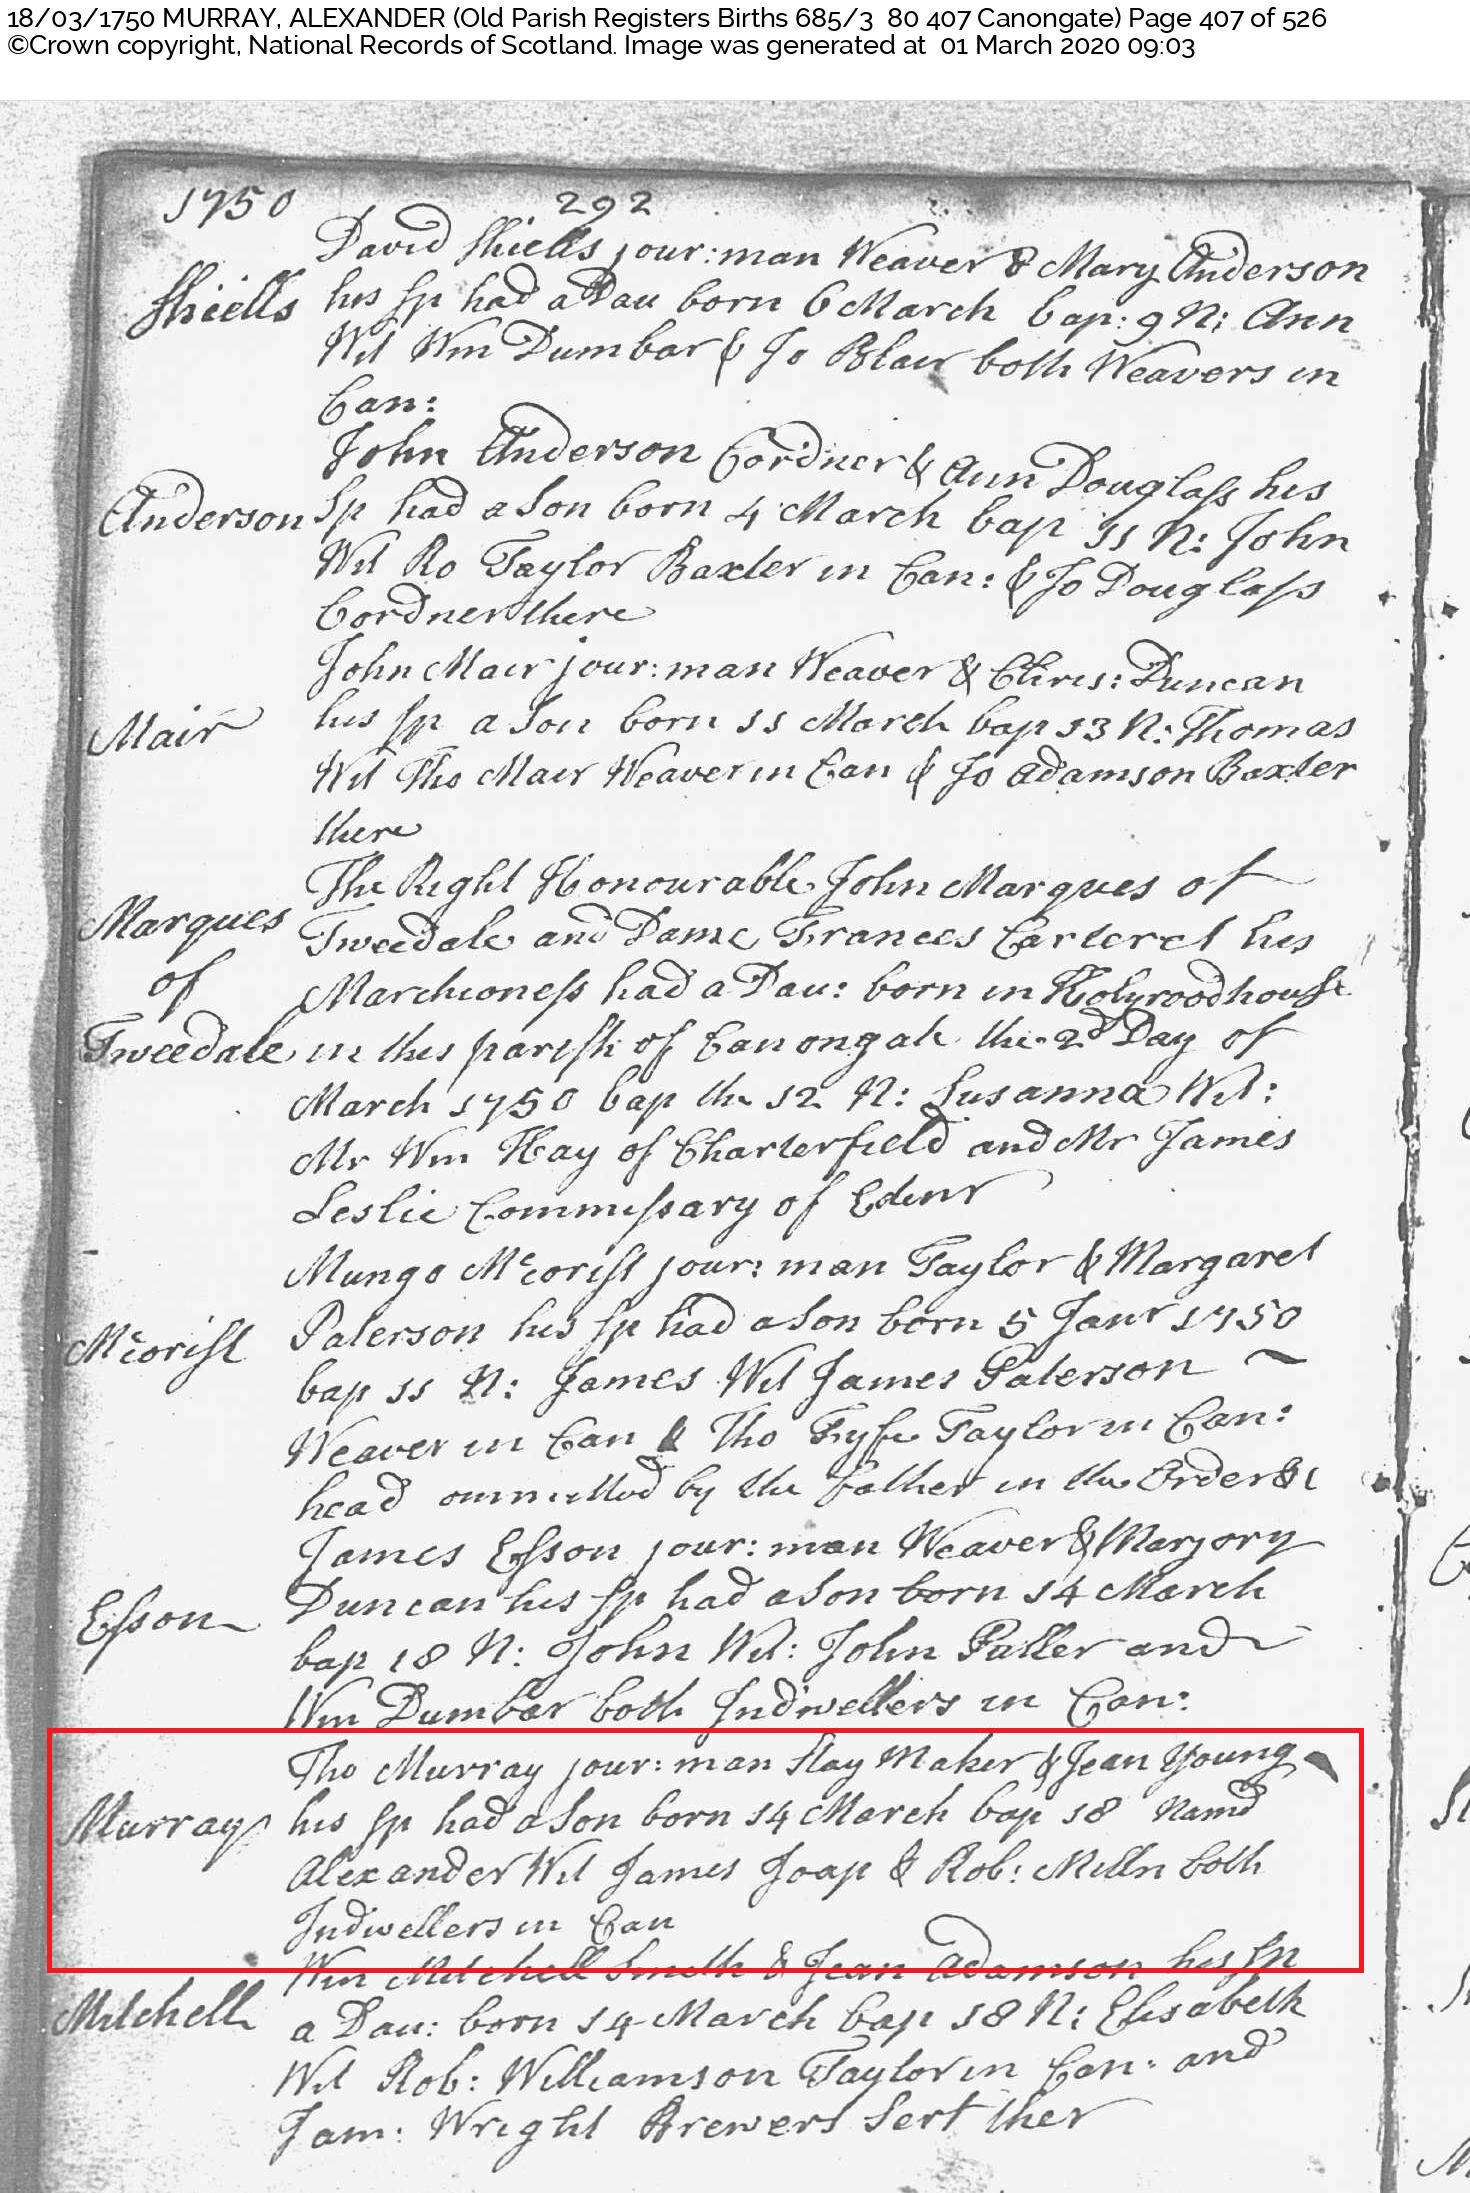 18/03/1750 MURRAY, ALEXANDER (Old Parish Registers Births 685/3 80 407 Canongate) Page 407 of 526
©Crown copyright, National Records of Scotland. Image was generated at 01 March 2020 09:03
1750 292
David Shiells jour:man Weaver & Mary Anderson
Shiells his sp had a Dau born 6 March bap: 9 N: Ann
Wit Wm Dumbar & Jo Blair both Weavers in
Can:
John Anderson Cordner & Ann Douglass his
Anderson Sp had a Son born 4 March bap 11 N: John
Wit Ro Taylor Baxter in Can: & Jo Douglass
Cordner there
John Mair jour:man Weaver & Chris: Duncan
Mair his sp a Son born 11 March bap 13 N: Thomas
Wit Tho Mair Weaver in Can & Jo Adamson Baxter
there
The Right Honourable John Marques of
Marques Tweedale and Dame Frances Carteret his
of Marchioness had a Dau: born in Holyroodhouse
Tweedale in this parish of Canongate the 2d Day of
March 1750 bap the 12 N: Susanna Wit:
Mr Wm Hay of Charterfield and Mr James
Leslie Commissary of Edenr
Mungo Mccorist jour: man Taylor & Margaret
Mccorist Paterson his sp had a Son born 5 Janr 1750
bap 11 N: James Wit James Paterson
Weaver in Can & Tho Fyfe Taylor in Can:
head ommitted by the father in the Order &c
James Esson jour: man Weaver & Marjory
Esson Duncan his sp had a Son born 14 March
bap 18 N: John Wit: John Fuller and
Wm Dumbar both Indwellers in Can:
Tho Murray jour: man Stay Maker & Jean Young
Murray his sp had a Son born 14 March bap 18 Namd
Alexander Wit James Joap & Rob: Milln both
Indwellers in Can
Wm Mitchell Smith & Jean Adamson his Sp
Mitchell a Dau: born 14 March bap 18 N: Elisabeth
Wit Rob: Williamson Taylor in Can: and
Jam: Wright Brewers Sert ther